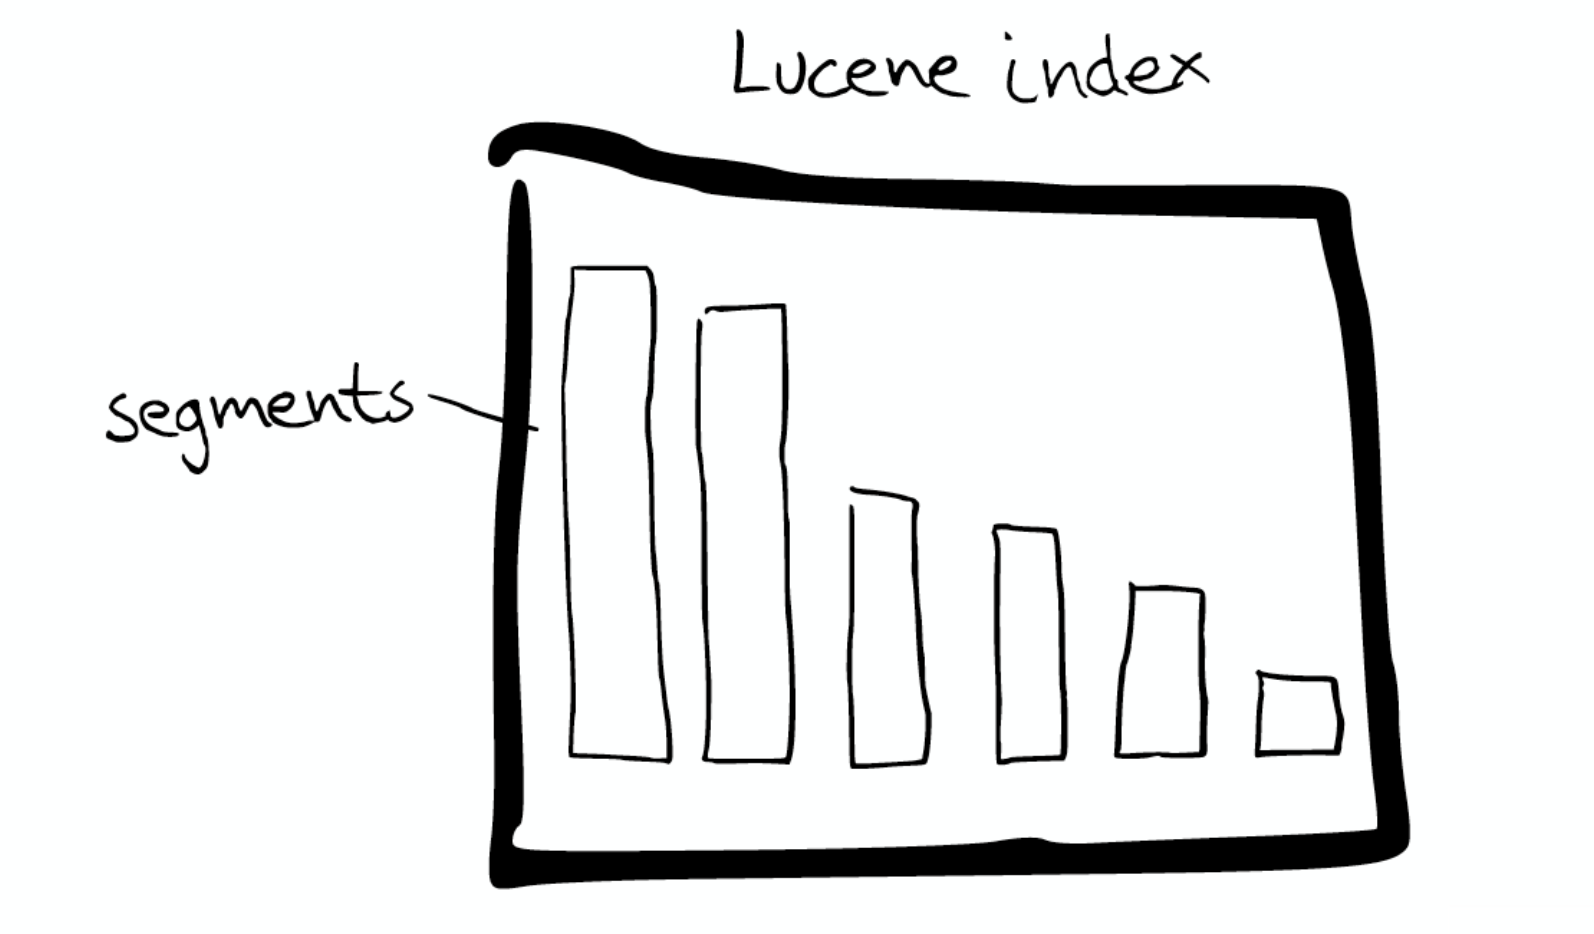 Lucene index
segments